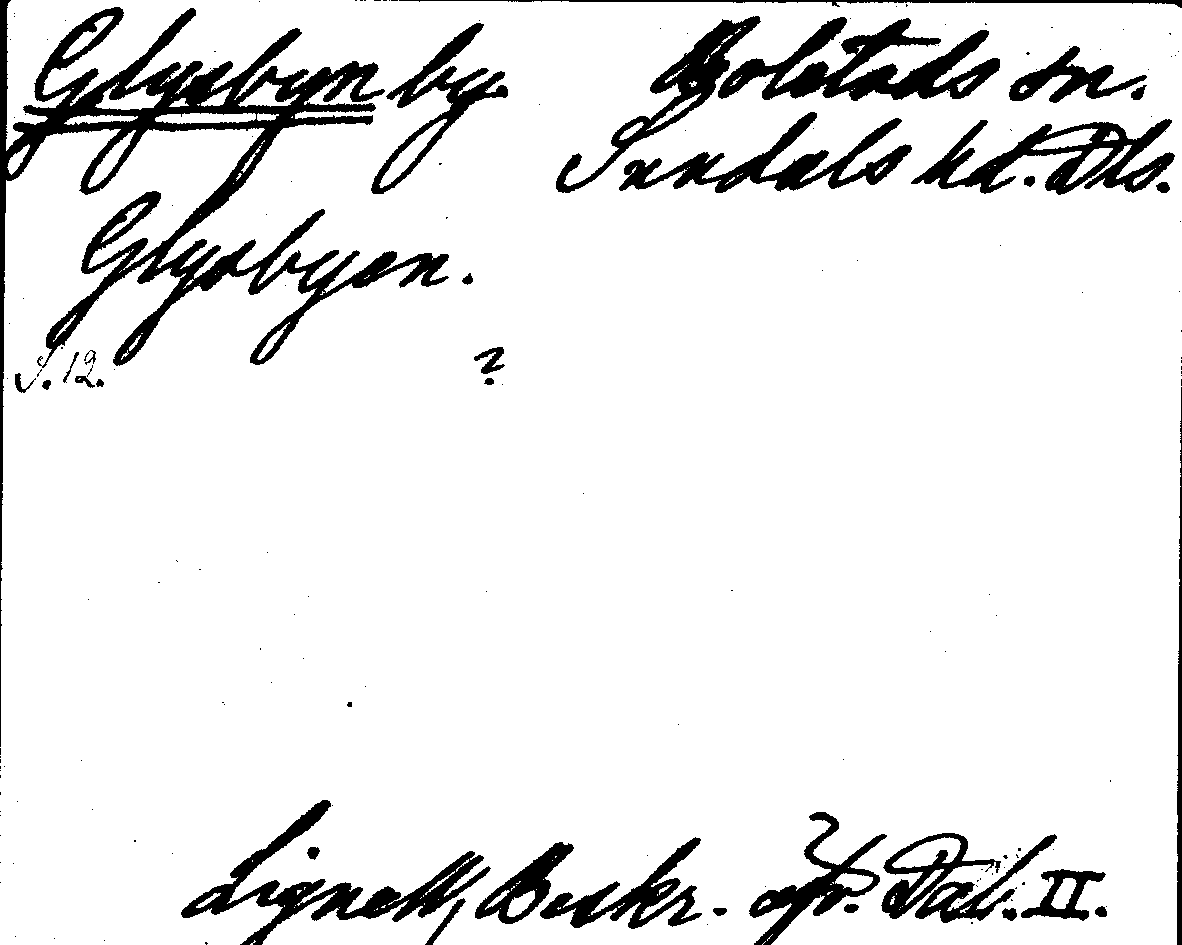 Glysbyn by. Bolstads sn.
Sundals hd. Dls.
Glysbyen.
S. 12. ?
Lignell, Beskr. öfv. Dal. II.